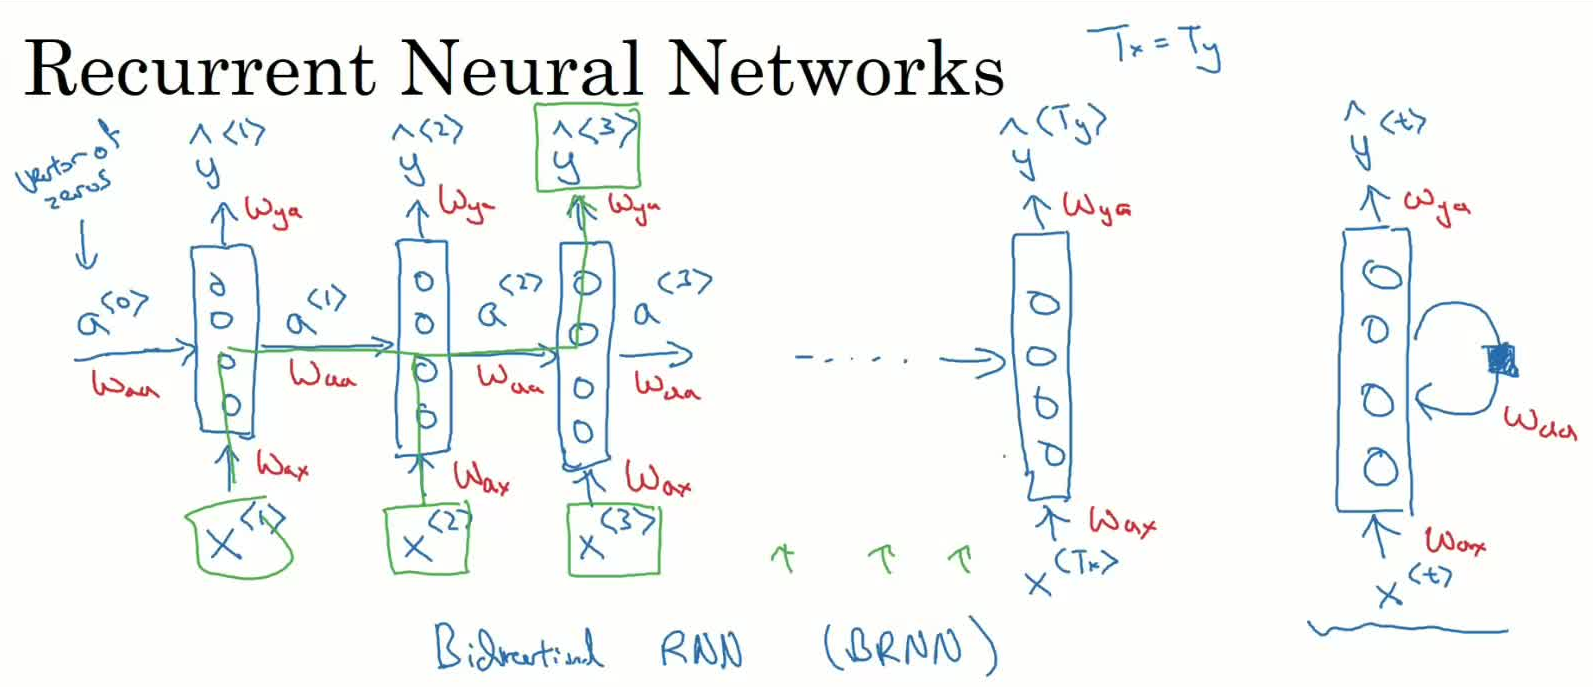 Recurrent Neural Networks
Tx = Ty
vector of
zeros
ŷ<1> ŷ<2> ŷ<3> ŷ<Ty> ŷ<t>
Wya Wya Wya Wya Wya
a<0> a<1> a<2> a<3>
Waa Waa Waa Waa Waa
Wax Wax Wax Wax Wax
x<1> x<2> x<3> x<Tx> x<t>
Bidirectional RNN (BRNN)